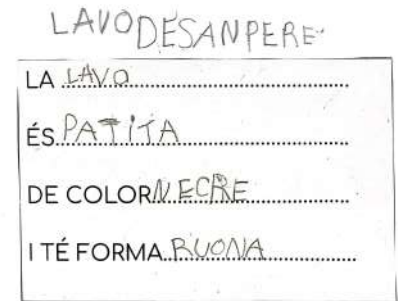 LAVODESANPERE
LA LAVO
ÉS PATITA
DE COLOR NECRE
I TÉ FORMA RUONA